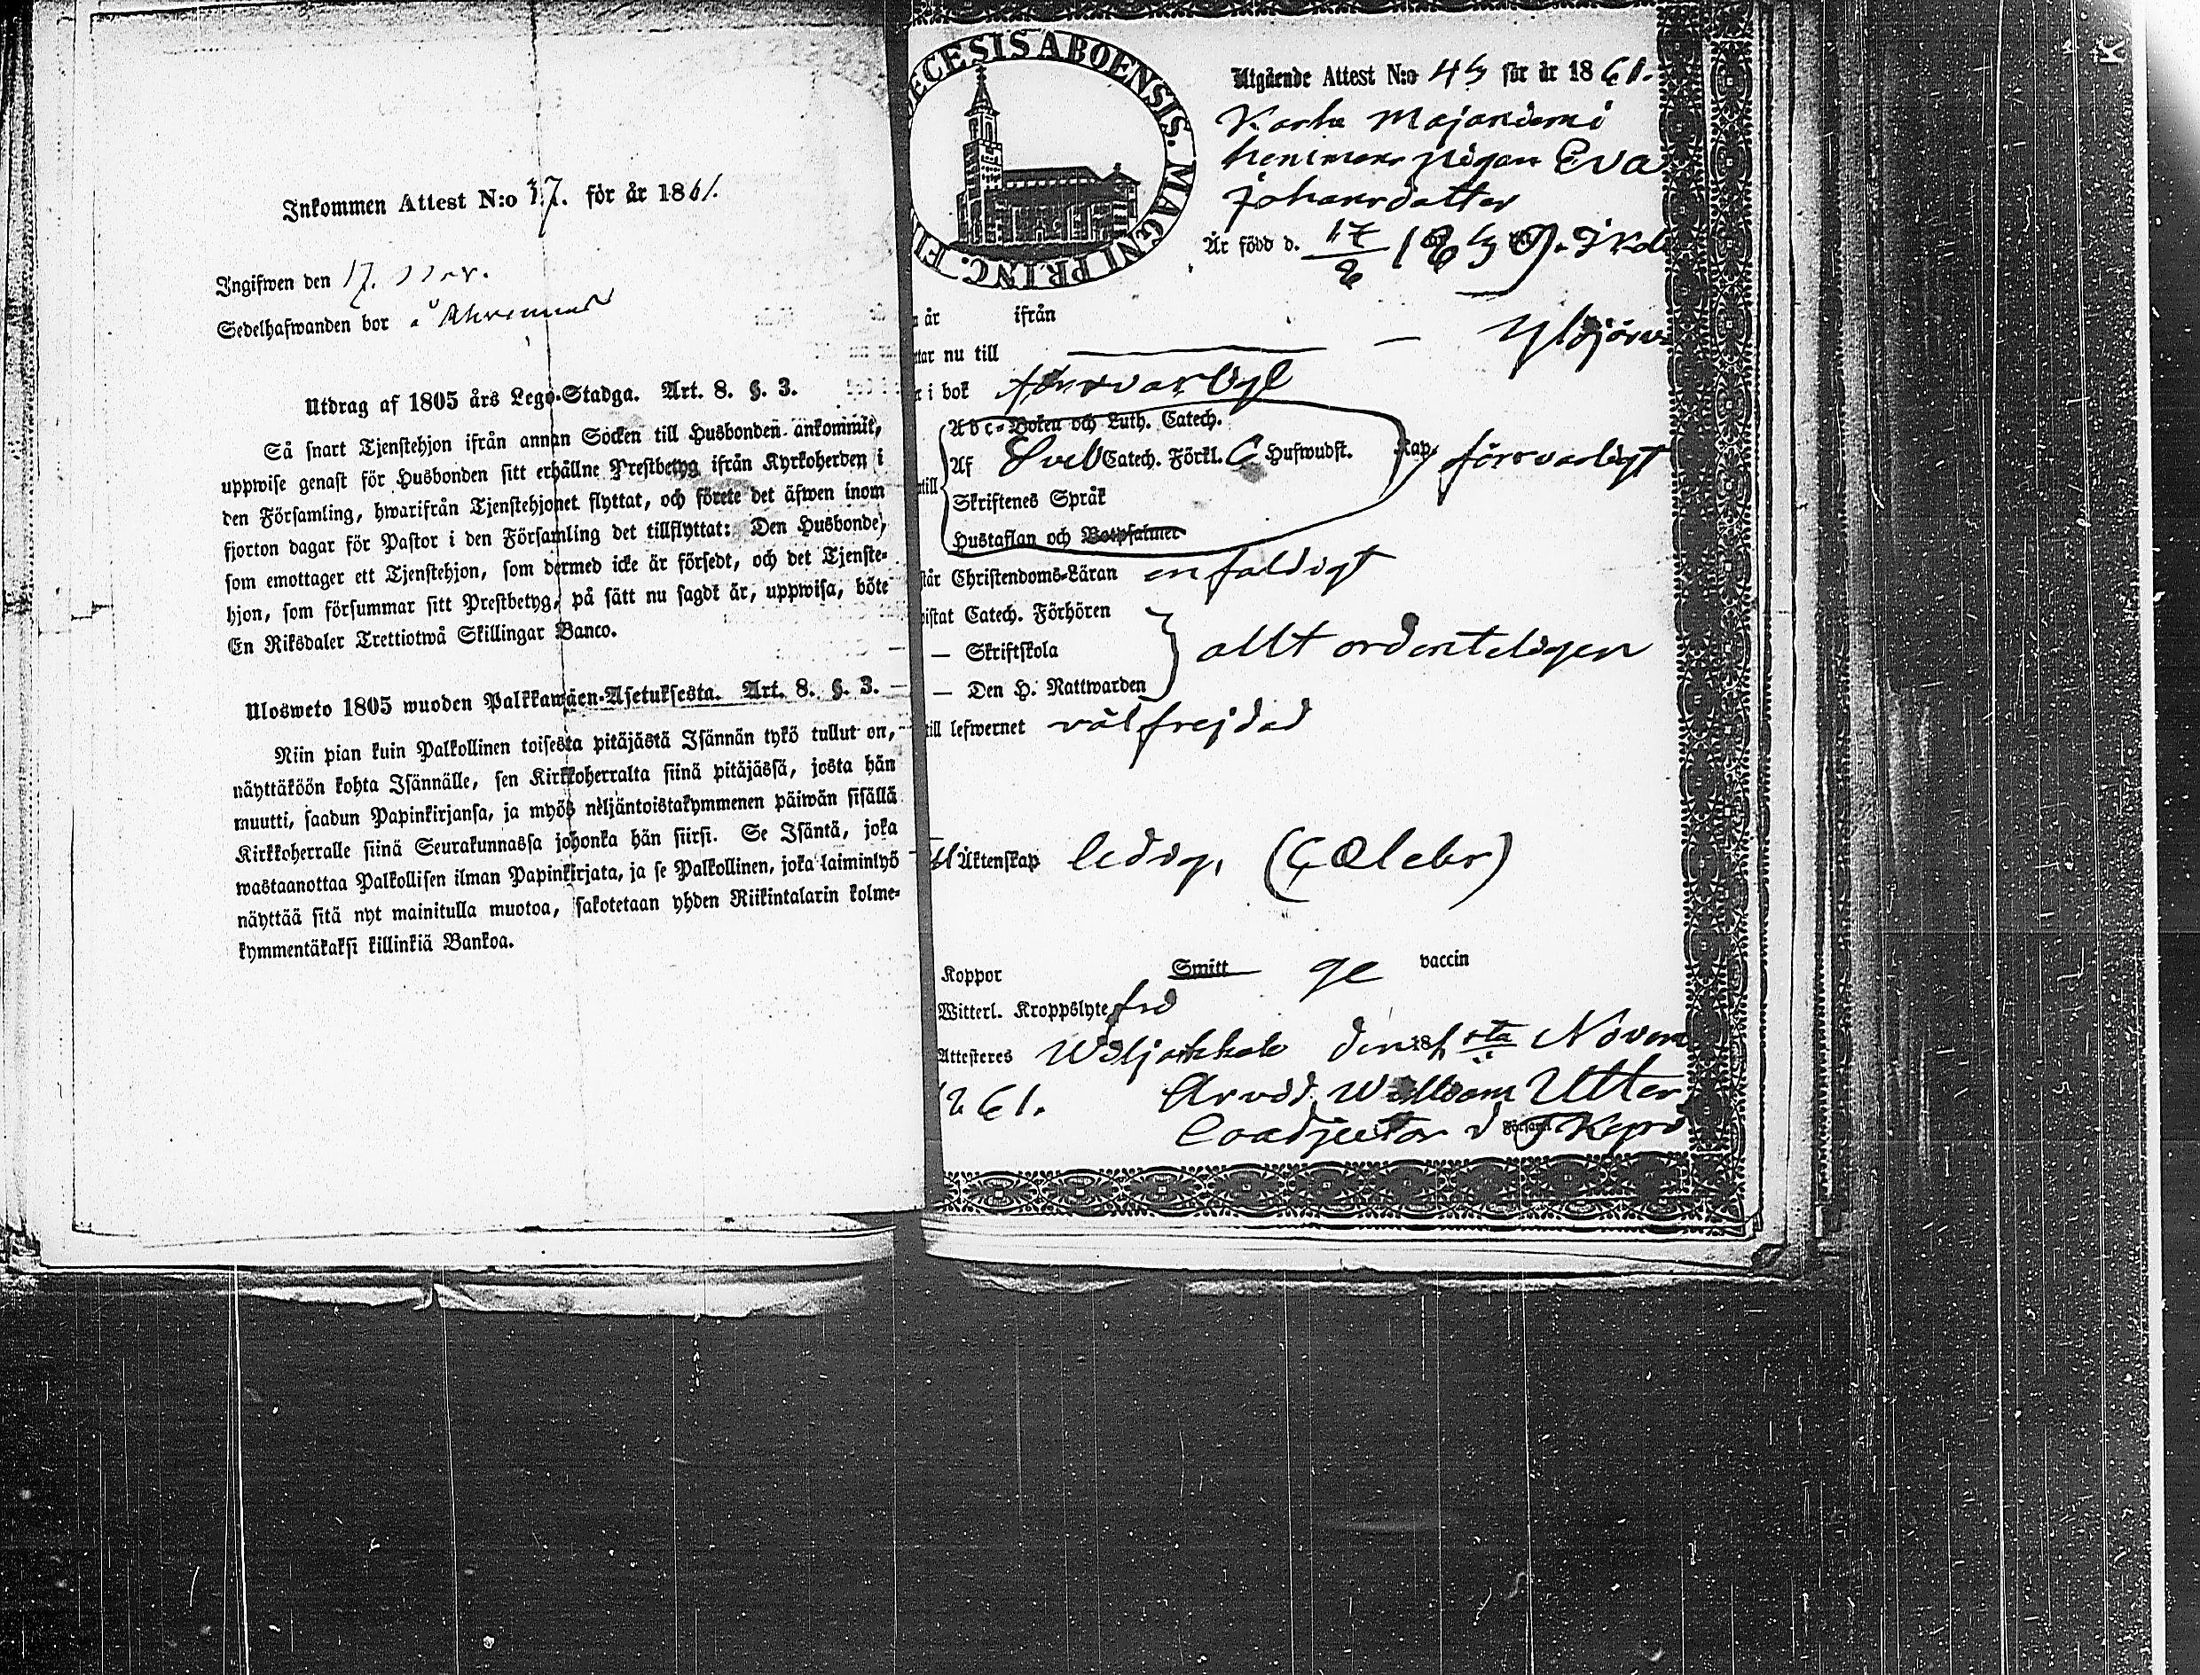 Inkommen Attest N:o 37. för år 1861.
Ingifwen den 17. Nov.
Sedelhafwanden bor å
Utdrag af 1805 års Lego-Stadga. Art. 8. §. 3.
Så snart Tjenstehjon ifrån annan Socken till Husbonden ankommit,
uppwise genast för Husbonden sitt erhållne Prestbetyg ifrån Kyrkoherden i
den Församling, hwarifrån Tjenstehjonet flyttat, och förete det äfwen inom
fjorton dagar för Pastor i den Församling det tillflyttat: Den Husbonde,
som emottager ett Tjenstehjon, som dermed icke är försedt, och det Tjenste-
hjon, som försummar sitt Prestbetyg, på sätt nu sagdt är, uppwisa, böte
En Riksdaler Trettiotwå Skillingar Banco.
Ulosweto 1805 wuoden Palkkawäen-Asetuksesta. Art. 8. §. 3.
Niin pian kuin Palkollinen toisesta pitäjästä Isännän tykö tullut on,
näyttäköön kohta Isännälle, sen Kirkkoherralta siinä pitäjässä, josta hän
muutti, saadun Papinkirjansa, ja myös neljäntoistakymmenen päiwän sisällä
Kirkkoherralle siinä Seurakunnassa johonka hän siirsi. Se Isäntä, joka
wastaanottaa Palkollisen ilman Papinkirjata, ja se Palkollinen, joka laiminlyö
näyttää sitä nyt mainitulla muotoa, sakotetaan yhden Riikintalarin kolme-
kymmentäkaksi killinkiä Bankoa.
ECESIS ABOENSIS. MAGNI PRINC. FI
Utgående Attest N:o 45 för år 1861.
Karhe Majaniemi
hemmans pigan Eva
Johansdotter
Är född d. 17/8 1839.
år ifrån
tar nu till — Ylöjärvi
r i bok försvarligt
Abc-Boken och Luth. Catech.
Af Sveb Catech. Förkl. Hufwudst. Kap. försvarligt
till
Skriftenes Språk
Hustaflan och Botpsalmer
står Christendoms-Läran enfaldigt
wistat Catech. Förhören
— Skriftskola allt ordenteligen
— Den H. Nattwarden
till lefwernet välfrejdad
till Äktenskap ledig, (Cælebs)
Koppor Smitt ge vaccin
Witterl. Kroppslyte fri
Attesteres Wiljakkala den 1sta Novem
1861. Arvid William Utter
Coadjutor i